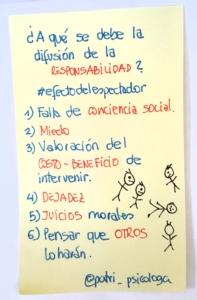 ¿A qué se debe la
difusión de la
RESPONSABILIDAD?
#efectodelespectador
1) Falta de conciencia social.
2) Miedo
3) Valoración del
COSTO-BENEFICIO de
intervenir.
4) DEJADEZ
5) JUICIOS morales
6) Pensar que OTROS
lo harán.
@patri_psicologa